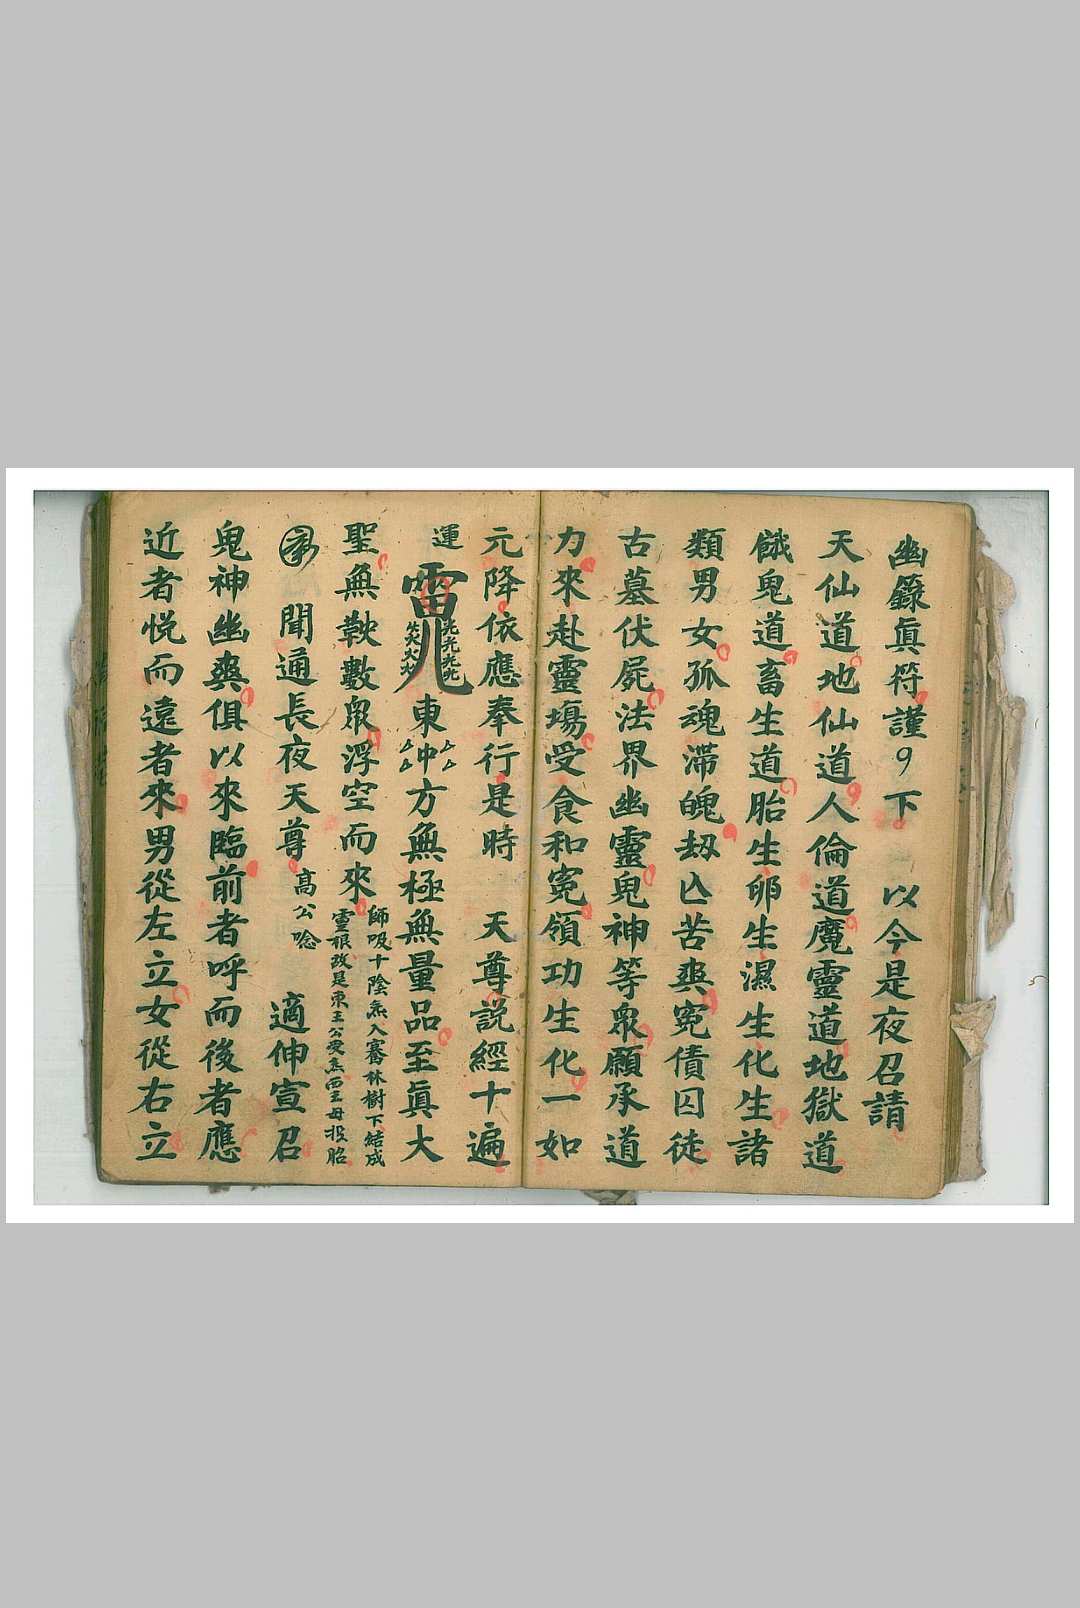 幽籙眞符謹9下　以今是夜召請
天仙道地仙道人倫道魔靈道地獄道
餓鬼道畜生道胎生卵生濕生化生諸
類男女孤魂滯魄劫亡苦爽寃債囚徒
古墓伏屍法界幽靈鬼神等眾願承道
力來赴靈場受食和寃領功生化一如
元降依應奉行是時　天尊説經十遍
運
東冲方無極無量品至眞大
聖無鞅數眾浮空而來
師吸十陰炁入騫林樹下結成
靈根改是東王公受炁西王母投胎
聞通長夜天尊
高公唸
適伸宣召
鬼神幽爽俱以來臨前者呼而後者應
近者悅而遠者來男從左立女從右立